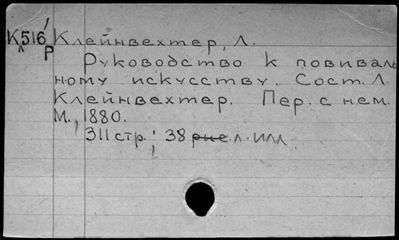 К516 Клейнвехтер, Л.
Р
Руководство к повиваль
ному искусству. Сост. Л.
Клейнвехтер. Пер. с нем.
М., 1880.
311 стр.; 38 рис. л. илл